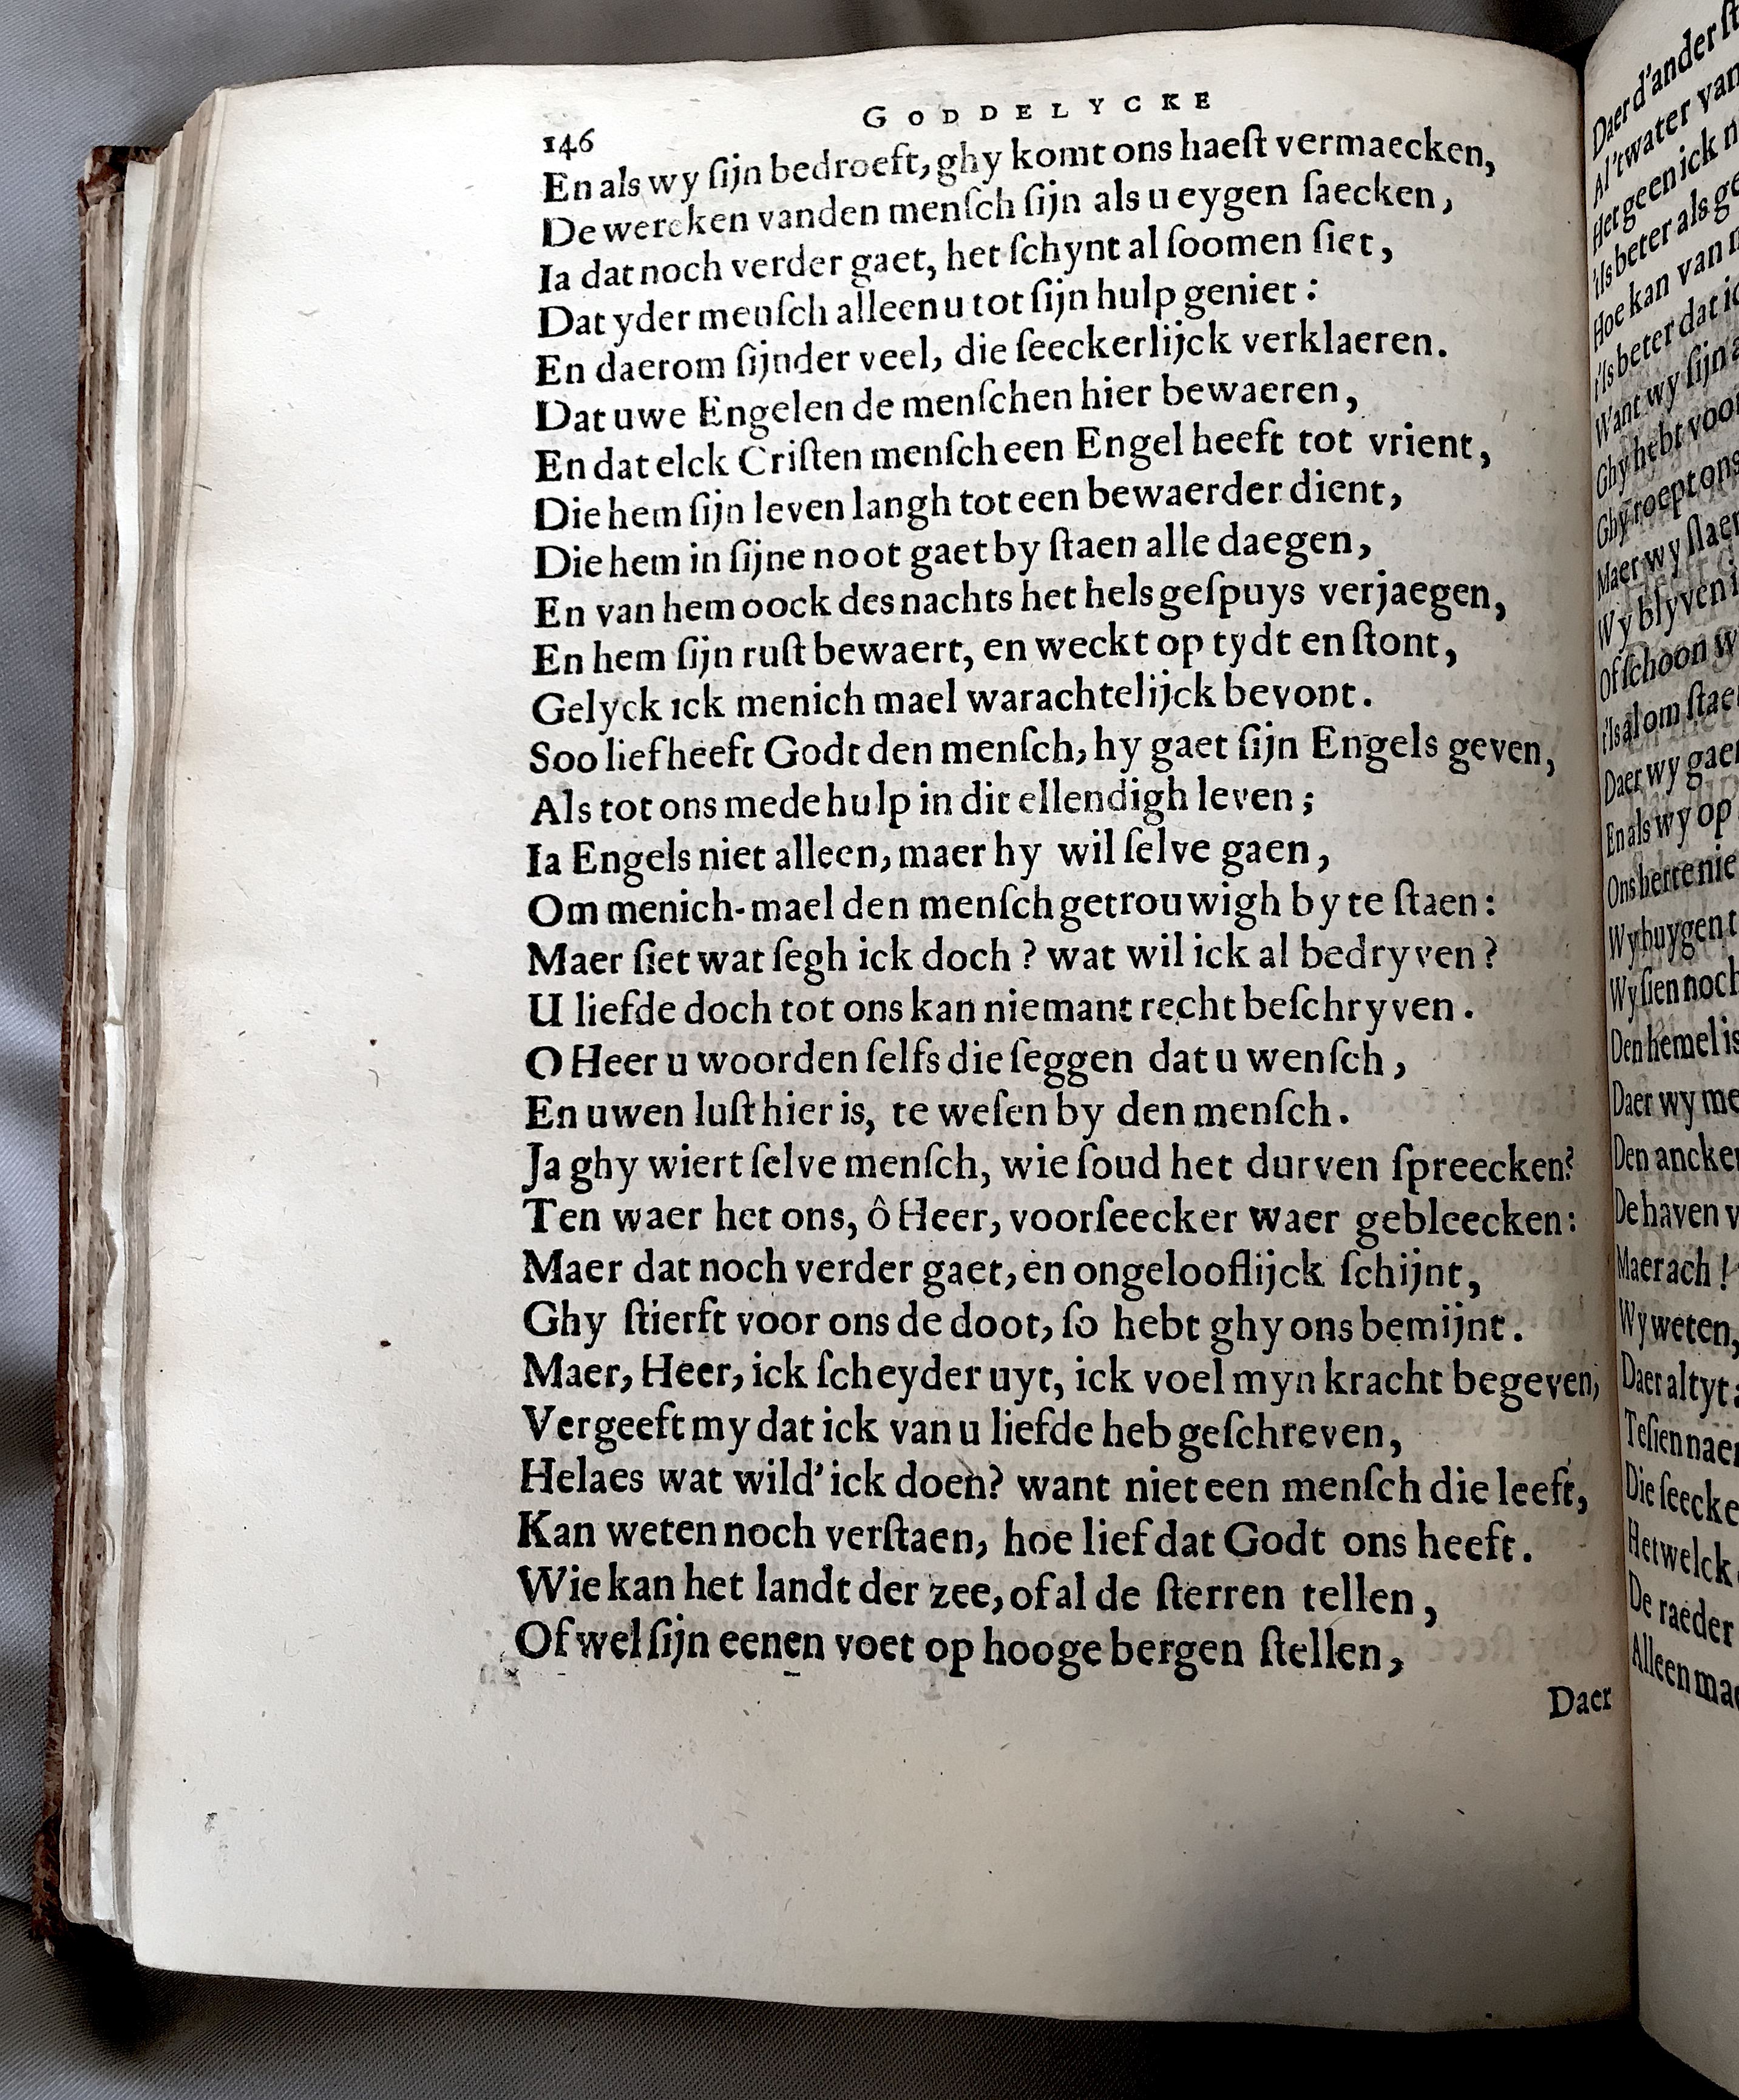 GODDELYCKE
146
En als wy ſijn bedroeft, ghy komt ons haeſt vermaecken,
De wercken vanden menſch ſijn als u eygen ſaecken,
Ia dat noch verder gaet, het ſchynt al ſoomen ſiet,
Dat yder menſch alleen u tot ſijn hulp geniet:
En daerom ſijnder veel, die ſeeckerlijck verklaeren.
Dat uwe Engelen de menſchen hier bewaeren,
En dat elck Criſten menſch een Engel heeft tot vrient,
Die hem ſijn leven langh tot een bewaerder dient,
Die hem in ſijne noot gaet by ſtaen alle daegen,
En van hem oock des nachts het hels geſpuys verjaegen,
En hem ſijn ruſt bewaert, en weckt op tydt en ſtont,
Gelyck ick menich mael warachtelijck bevont.
Soo lief heeft Godt den menſch, hy gaet ſijn Engels geven,
Als tot ons mede hulp in dit ellendigh leven;
Ia Engels niet alleen, maer hy wil ſelve gaen,
Om menich-mael den menſch getrouwigh by te ſtaen:
Maer ſiet wat ſegh ick doch? wat wil ick al bedryven?
U liefde doch tot ons kan niemant recht beſchryven.
O Heer u woorden ſelfs die ſeggen dat u wenſch,
En uwen luſt hier is, te weſen by den menſch.
Ja ghy wiert ſelve menſch, wie ſoud het durven ſpreecken?
Ten waer het ons, ô Heer, voorſeecker waer gebleecken:
Maer dat noch verder gaet, en ongelooflijck ſchijnt,
Ghy ſtierft voor ons de doot, ſo hebt ghy ons bemijnt.
Maer, Heer, ick ſcheyder uyt, ick voel myn kracht begeven,
Vergeeft my dat ick van u liefde heb geſchreven,
Helaes wat wild' ick doen? want niet een menſch die leeft,
Kan weten noch verſtaen, hoe lief dat Godt ons heeft.
Wie kan het landt der zee, of al de ſterren tellen,
Of wel ſijn eenen voet op hooge bergen ſtellen,
Daer
Daer d'ander
Al 't water van
Het geen ick
't Is beter als
Hoe kan van
't Is beter dat
Want wy ſijn
Ghy hebt
Ghy roept ons
Maer wy
Wy blyven
Of ſchoon
't Is al om
Daer wy
En als wy op
Ons herte
Wy buygen
Wy ſien noch
Den hemel is
Daer wy
Den
De haven
Maer ach!
Wy weten,
Daer altyt
Te ſien
Die
Het welck
De raeder
Alleen